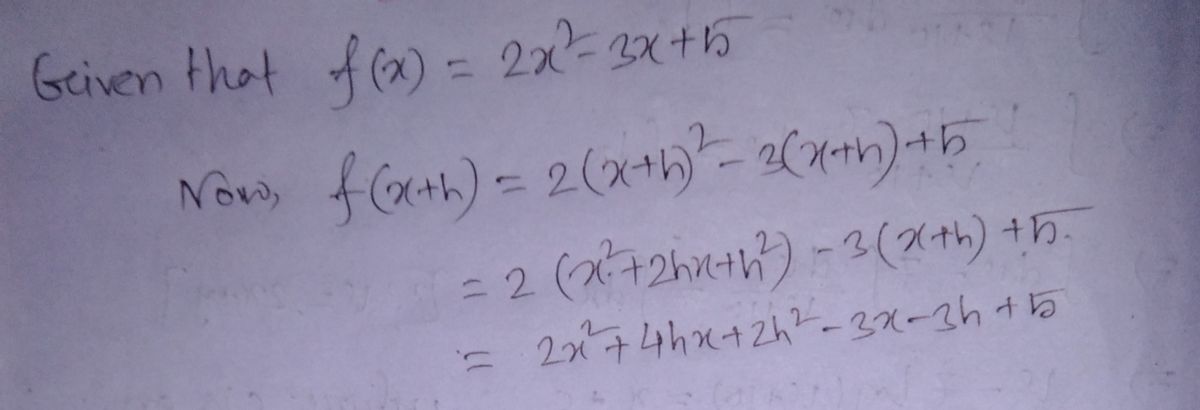 Given that f(x) = 2x² - 3x + 5
Now, f(x+h) = 2(x+h)² - 3(x+h) + 5
= 2(x² + 2hx + h²) - 3(x+h) + 5.
= 2x² + 4hx + 2h² - 3x - 3h + 5